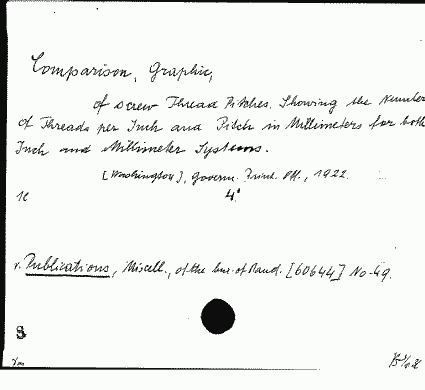 Comparison, Graphic,
of screw Thread Pitches. Showing the Number
of Threads per Inch and Pitch in Millimeters for both
Inch and Millimeter Systems.
[Washington], Govern. Print. Off., 1922.
4°
v. Publications, Miscell., of the bur. of Stand. [60644] No. 49.
S